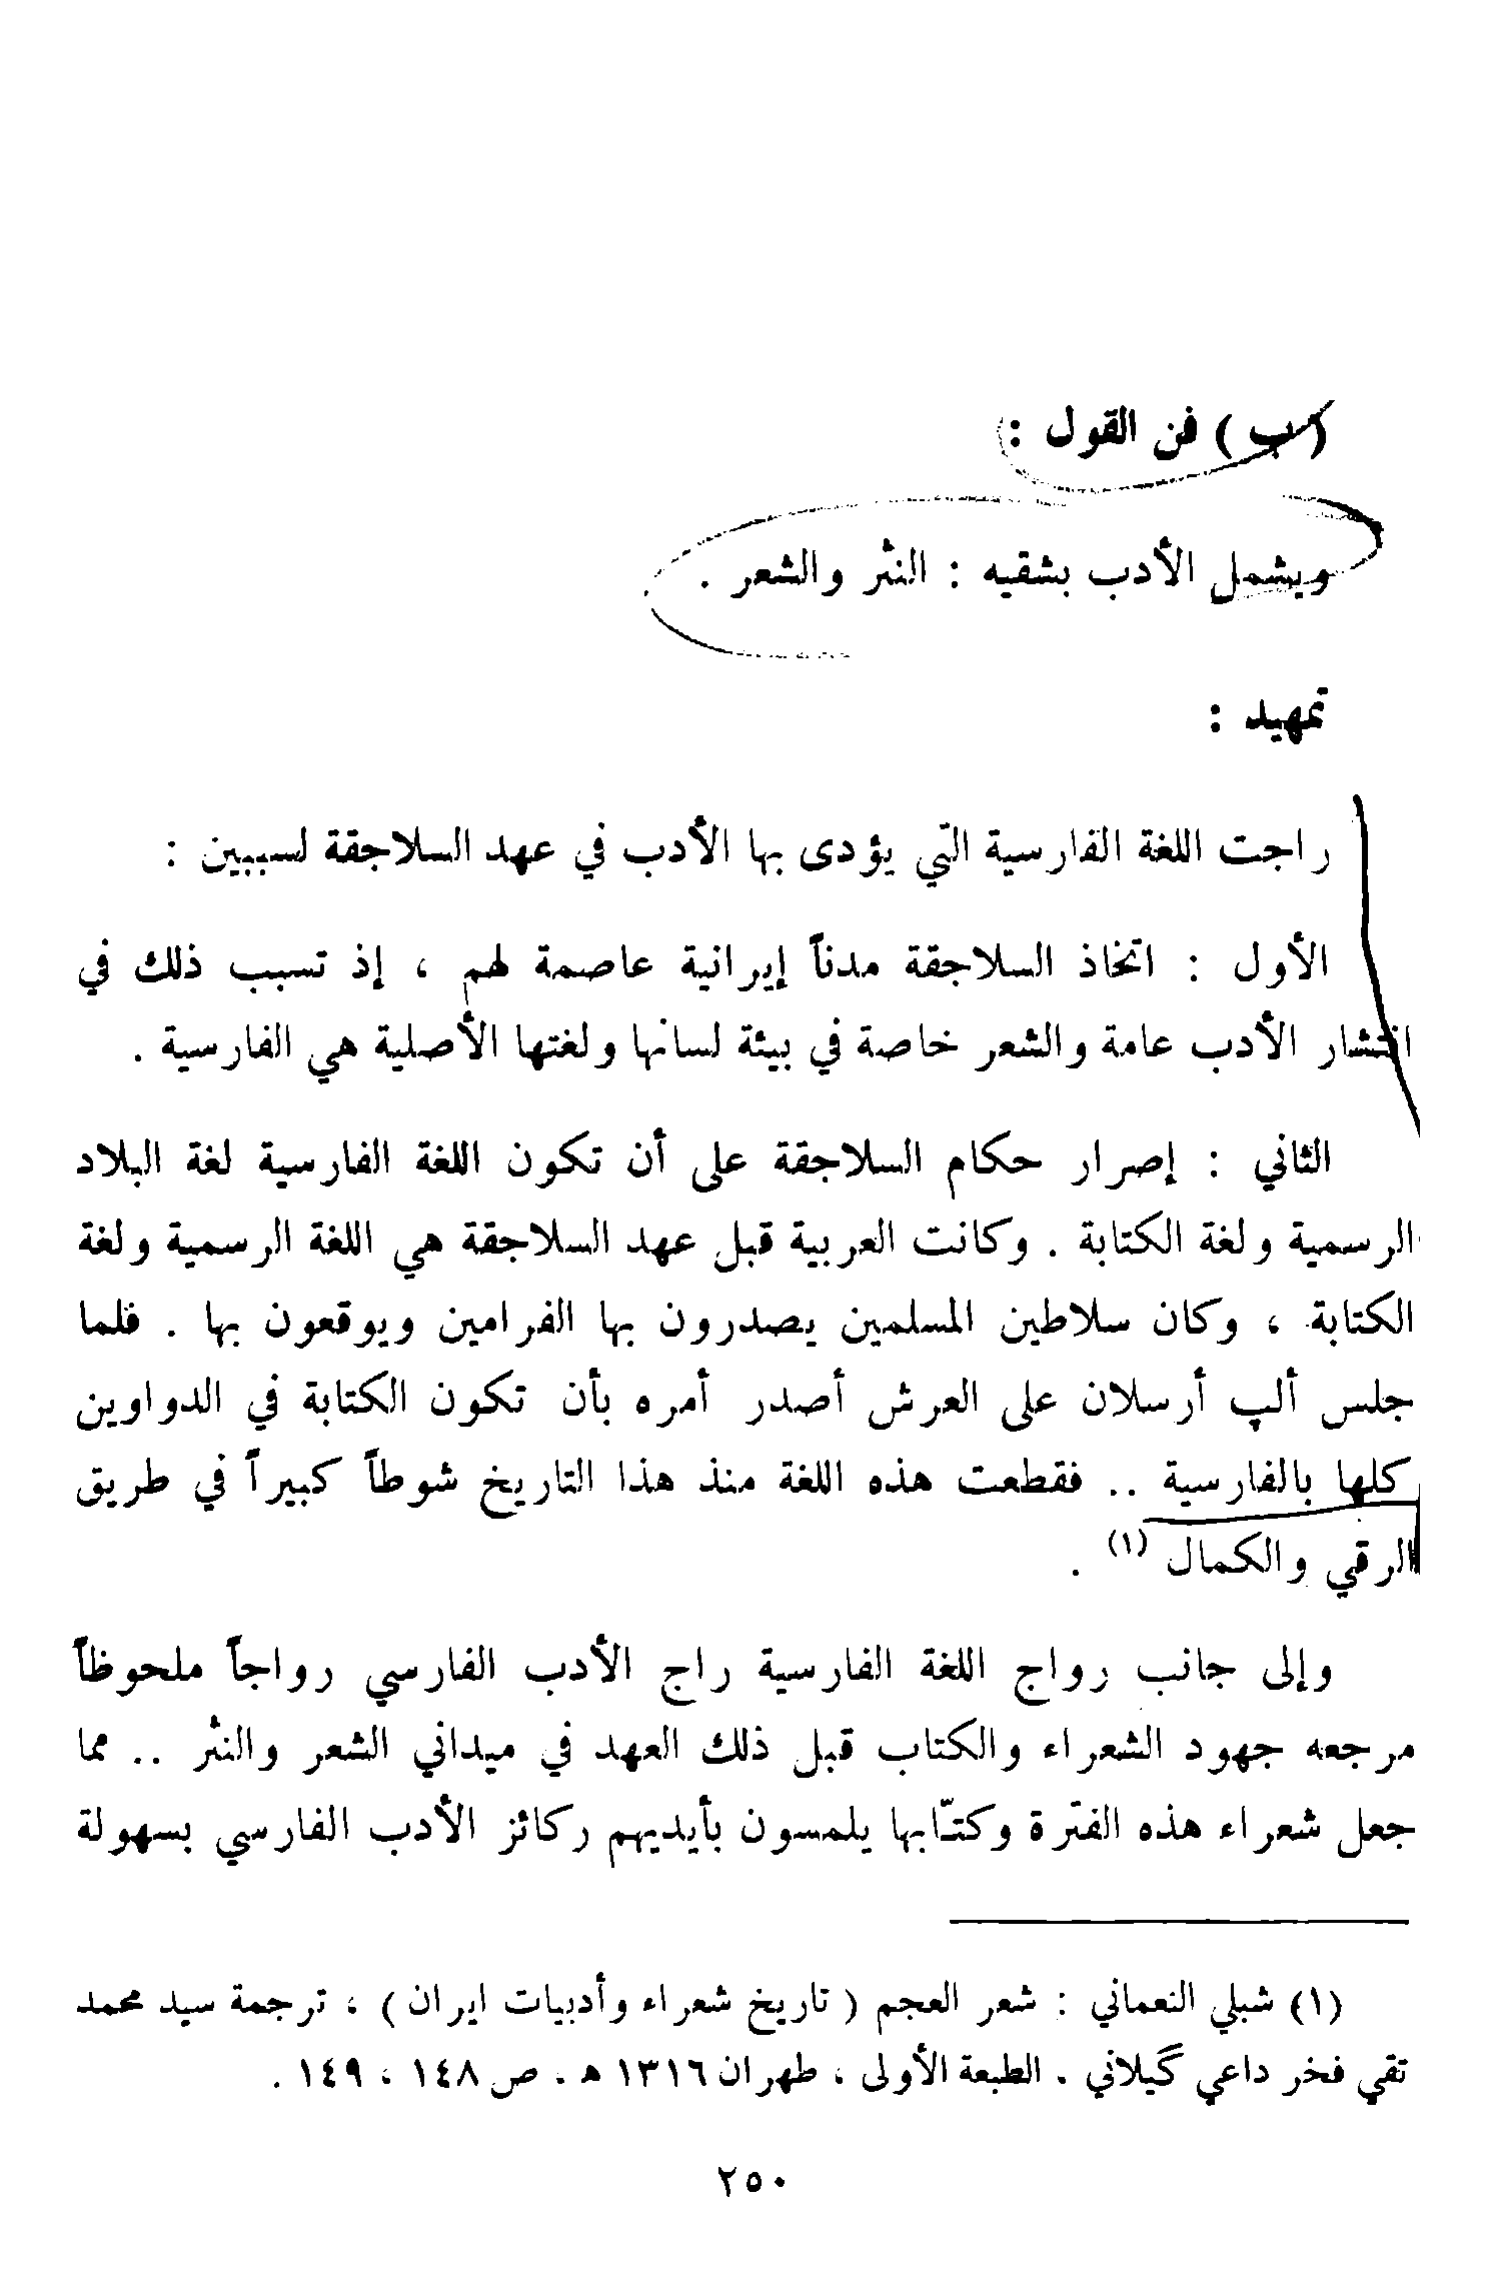 (ب) فن القول :
ويشمل الأدب بشقيه : النثر والشعر .
تمهيد :
راجت اللغة الفارسية التي يؤدى بها الأدب في عهد السلاجقة لسببين :
الأول : اتخاذ السلاجقة مدناً إيرانية عاصمة لهم ، إذ تسبب ذلك في
انتشار الأدب عامة والشعر خاصة في بيئة لسانها ولغتها الأصلية هي الفارسية .
الثاني : إصرار حكام السلاجقة على أن تكون اللغة الفارسية لغة البلاد
الرسمية ولغة الكتابة . وكانت العربية قبل عهد السلاجقة هي اللغة الرسمية ولغة
الكتابة ، وكان سلاطين المسلمين يصدرون بها الفرامين ويوقعون بها . فلما
جلس ألپ أرسلان على العرش أصدر أمره بأن تكون الكتابة في الدواوين
كلها بالفارسية .. فقطعت هذه اللغة منذ هذا التاريخ شوطاً كبيراً في طريق
الرقي والكمال (١) .
وإلى جانب رواج اللغة الفارسية راج الأدب الفارسي رواجاً ملحوظاً
مرجعه جهود الشعراء والكتاب قبل ذلك العهد في ميداني الشعر والنثر .. مما
جعل شعراء هذه الفترة وكتّابها يلمسون بأيديهم ركائز الأدب الفارسي بسهولة
(١) شبلي النعماني : شعر العجم ( تاريخ شعراء وأدبيات ايران ) ، ترجمة سيد محمد
تقي فخر داعي گيلاني . الطبعة الأولى ، طهران ١٣١٦ ه . ص ١٤٨ ، ١٤٩ .
٢٥٠